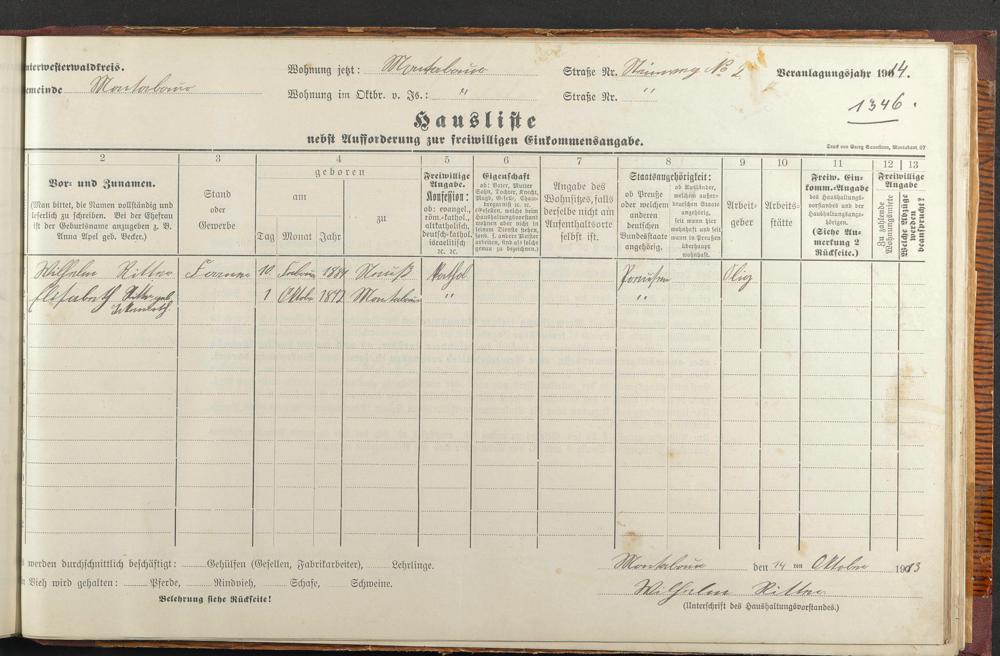 nterwesterwaldkreis. Wohnung jetzt: Montabaur Straße Nr. Steinweg No 2 Veranlagungsjahr 1914.
emeinde Montabaur Wohnung im Oktbr. v. Js.: " Straße Nr. "
1346.
Hausliste
nebst Aufforderung zur freiwilligen Einkommensangabe.
Druck von Georg Sauerborn, Montabaur 07
2 3 4 5 6 7 8 9 10 11 12 13
Vor- und Zunamen.
(Man bittet, die Namen vollständig und
leserlich zu schreiben. Bei der Ehefrau
ist der Geburtsname anzugeben z. B.
Anna Apel geb. Becker.)
Stand
oder
Gewerbe
geboren
am
zu
Tag Monat Jahr
Freiwillige
Angabe.
Konfession:
ob: evangel.,
röm.-kathol.,
altkatholisch,
deutsch-kathol.
israelitisch
ꝛc. ꝛc.
Eigenschaft
ob: Vater, Mutter
Sohn, Tochter, Knecht,
Magd, Geselle, Cham-
bregarnist ꝛc. ꝛc.
(Gesellen, welche beim
Haushaltungsvorstand
wohnen aber nicht in
seinem Dienste stehen,
sond. f. andere Meister
arbeiten, sind als solche
genau zu bezeichnen.)
Angabe des
Wohnsitzes, falls
derselbe nicht am
Aufenthaltsorte
selbst ist.
Staatsangehörigkeit:
ob Preuße
oder welchem
anderen
deutschen
Bundesstaate
angehörig.
ob Ausländer,
welchem außer-
deutschen Staate
angehörig,
seit wann hier
wohnhaft und seit
wann in Preußen
überhaupt
wohnhaft.
Arbeit-
geber
Arbeits-
stätte
Freiw. Ein-
komm.-Angabe
des Haushaltungs-
vorstandes und der
Haushaltungsange-
hörigen.
(Siehe An-
merkung 2
Rückseite.)
Freiwillige
Angabe
Zu zahlende
Wohnungsmiete
Welche Abzüge
werden
beansprucht?
Wilhelm Ritter 10 1884 Kathol Preussen
Elisabeth Ritter geb. 1 Oktober Montabaur " "
werden durchschnittlich beschäftigt: Gehülfen (Gesellen, Fabrikarbeiter), Lehrlinge.
Vieh wird gehalten: Pferde, Rindvieh, Schafe, Schweine.
Belehrung siehe Rückseite!
Montabaur den 14 ten Oktober 1913
Wilhelm Ritter
(Unterschrift des Haushaltungsvorstandes.)